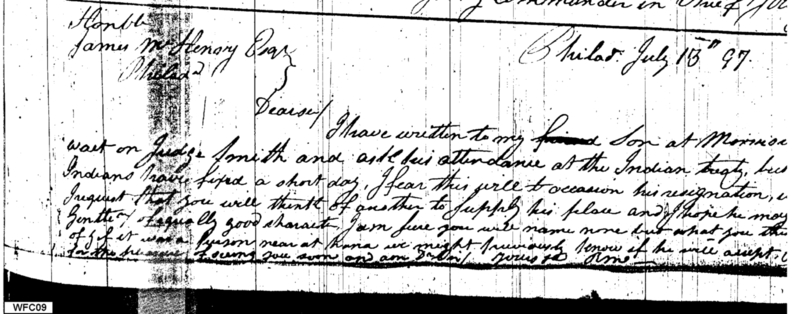 Commander in Chief
Honble
James McHenry Esqr
Philada
Philad. July 13th 97.
Dear Sir/
I have written to my friend Son at Morriso
wait on Judge Smith and ask his attendance at the Indian treaty, but
Indians have fixed a short day, I fear this will occasion his resignation,
I request that you will think of another to supply his place and I hope he may
of equally good character I am sure you will name none but what you
if it was a person near at hand we might previously know if he will accept.
for the pleasure of seeing you soon and am Dr Sir/ yours
WFC09